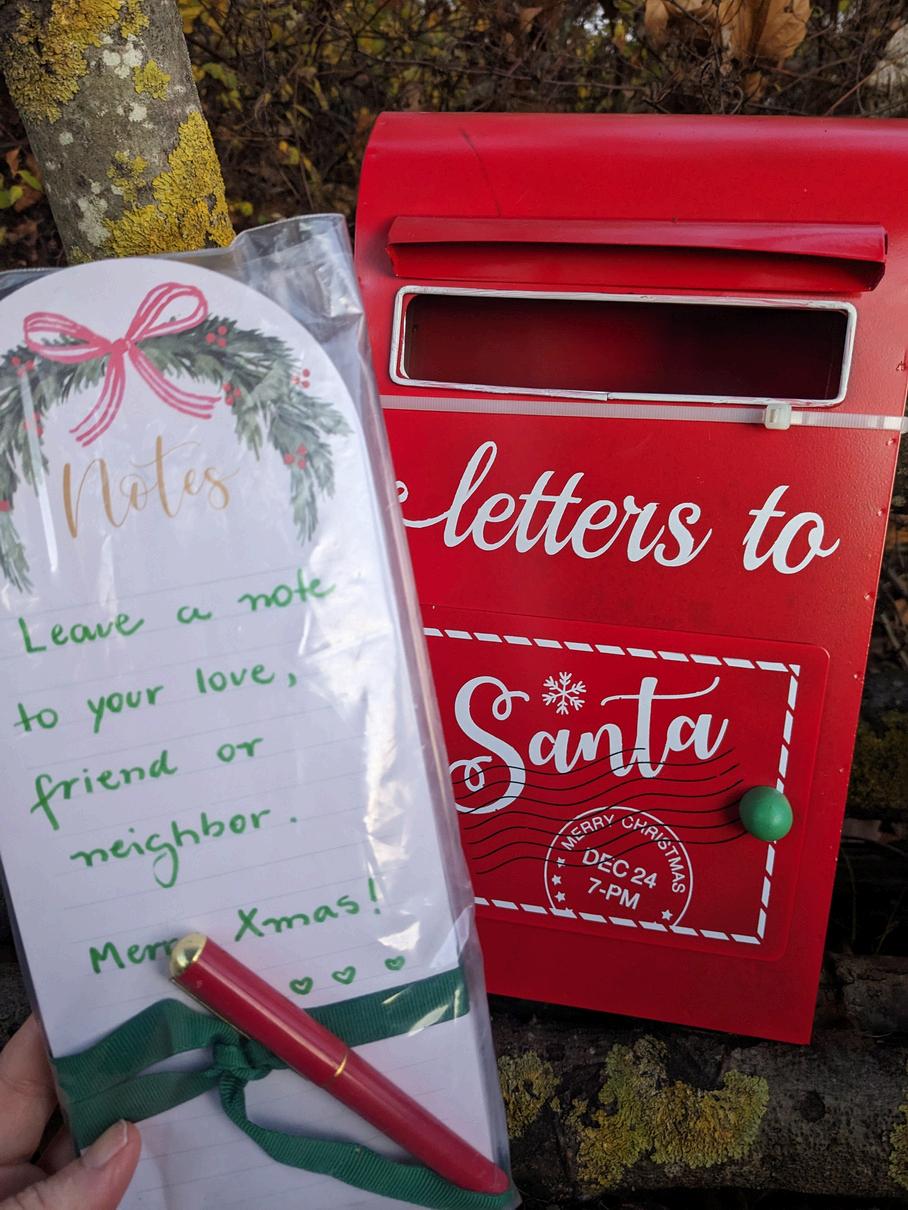 Notes
Leave a note
to your love,
friend or
neighbor.
Merry Xmas!
letters to
Santa
MERRY CHRISTMAS
DEC 24
7-PM